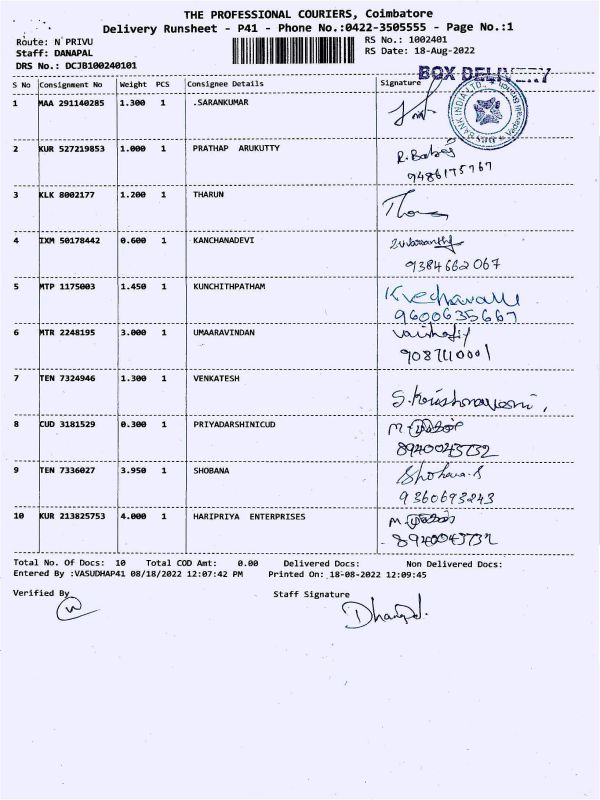 THE PROFESSIONAL COURIERS, Coimbatore
Delivery Runsheet - P41 - Phone No.:0422-3505555 - Page No.:1
Route: N PRIVU RS No.: 1002401
Staff: DANAPAL RS Date: 18-Aug-2022
DRS No.: DCJB100240101
BOX DELIVERY
S No Consignment No Weight PCS Consignee Details Signature
1 MAA 291140285 1.300 1 .SARANKUMAR
2 KUR 527219853 1.000 1 PRATHAP ARUKUTTY R. Babu
9486175767
3 KLK 8002177 1.200 1 THARUN
4 IXM 50178442 0.600 1 KANCHANADEVI
9384662067
5 MTP 1175003 1.450 1 KUNCHITHPATHAM
9600635667
6 MTR 2248195 3.000 1 UMAARAVINDAN
90871110001
7 TEN 7324946 1.300 1 VENKATESH
S. Krishnaveni,
8 CUD 3181529 0.300 1 PRIYADARSHINICUD
8940043732
9 TEN 7336027 3.950 1 SHOBANA Shobana.S
9360693243
10 KUR 213825753 4.000 1 HARIPRIYA ENTERPRISES
8940043732
Total No. Of Docs: 10 Total COD Amt: 0.00 Delivered Docs: Non Delivered Docs:
Entered By :VASUDHAP41 08/18/2022 12:07:42 PM Printed On: 18-08-2022 12:09:45
Verified By Staff Signature